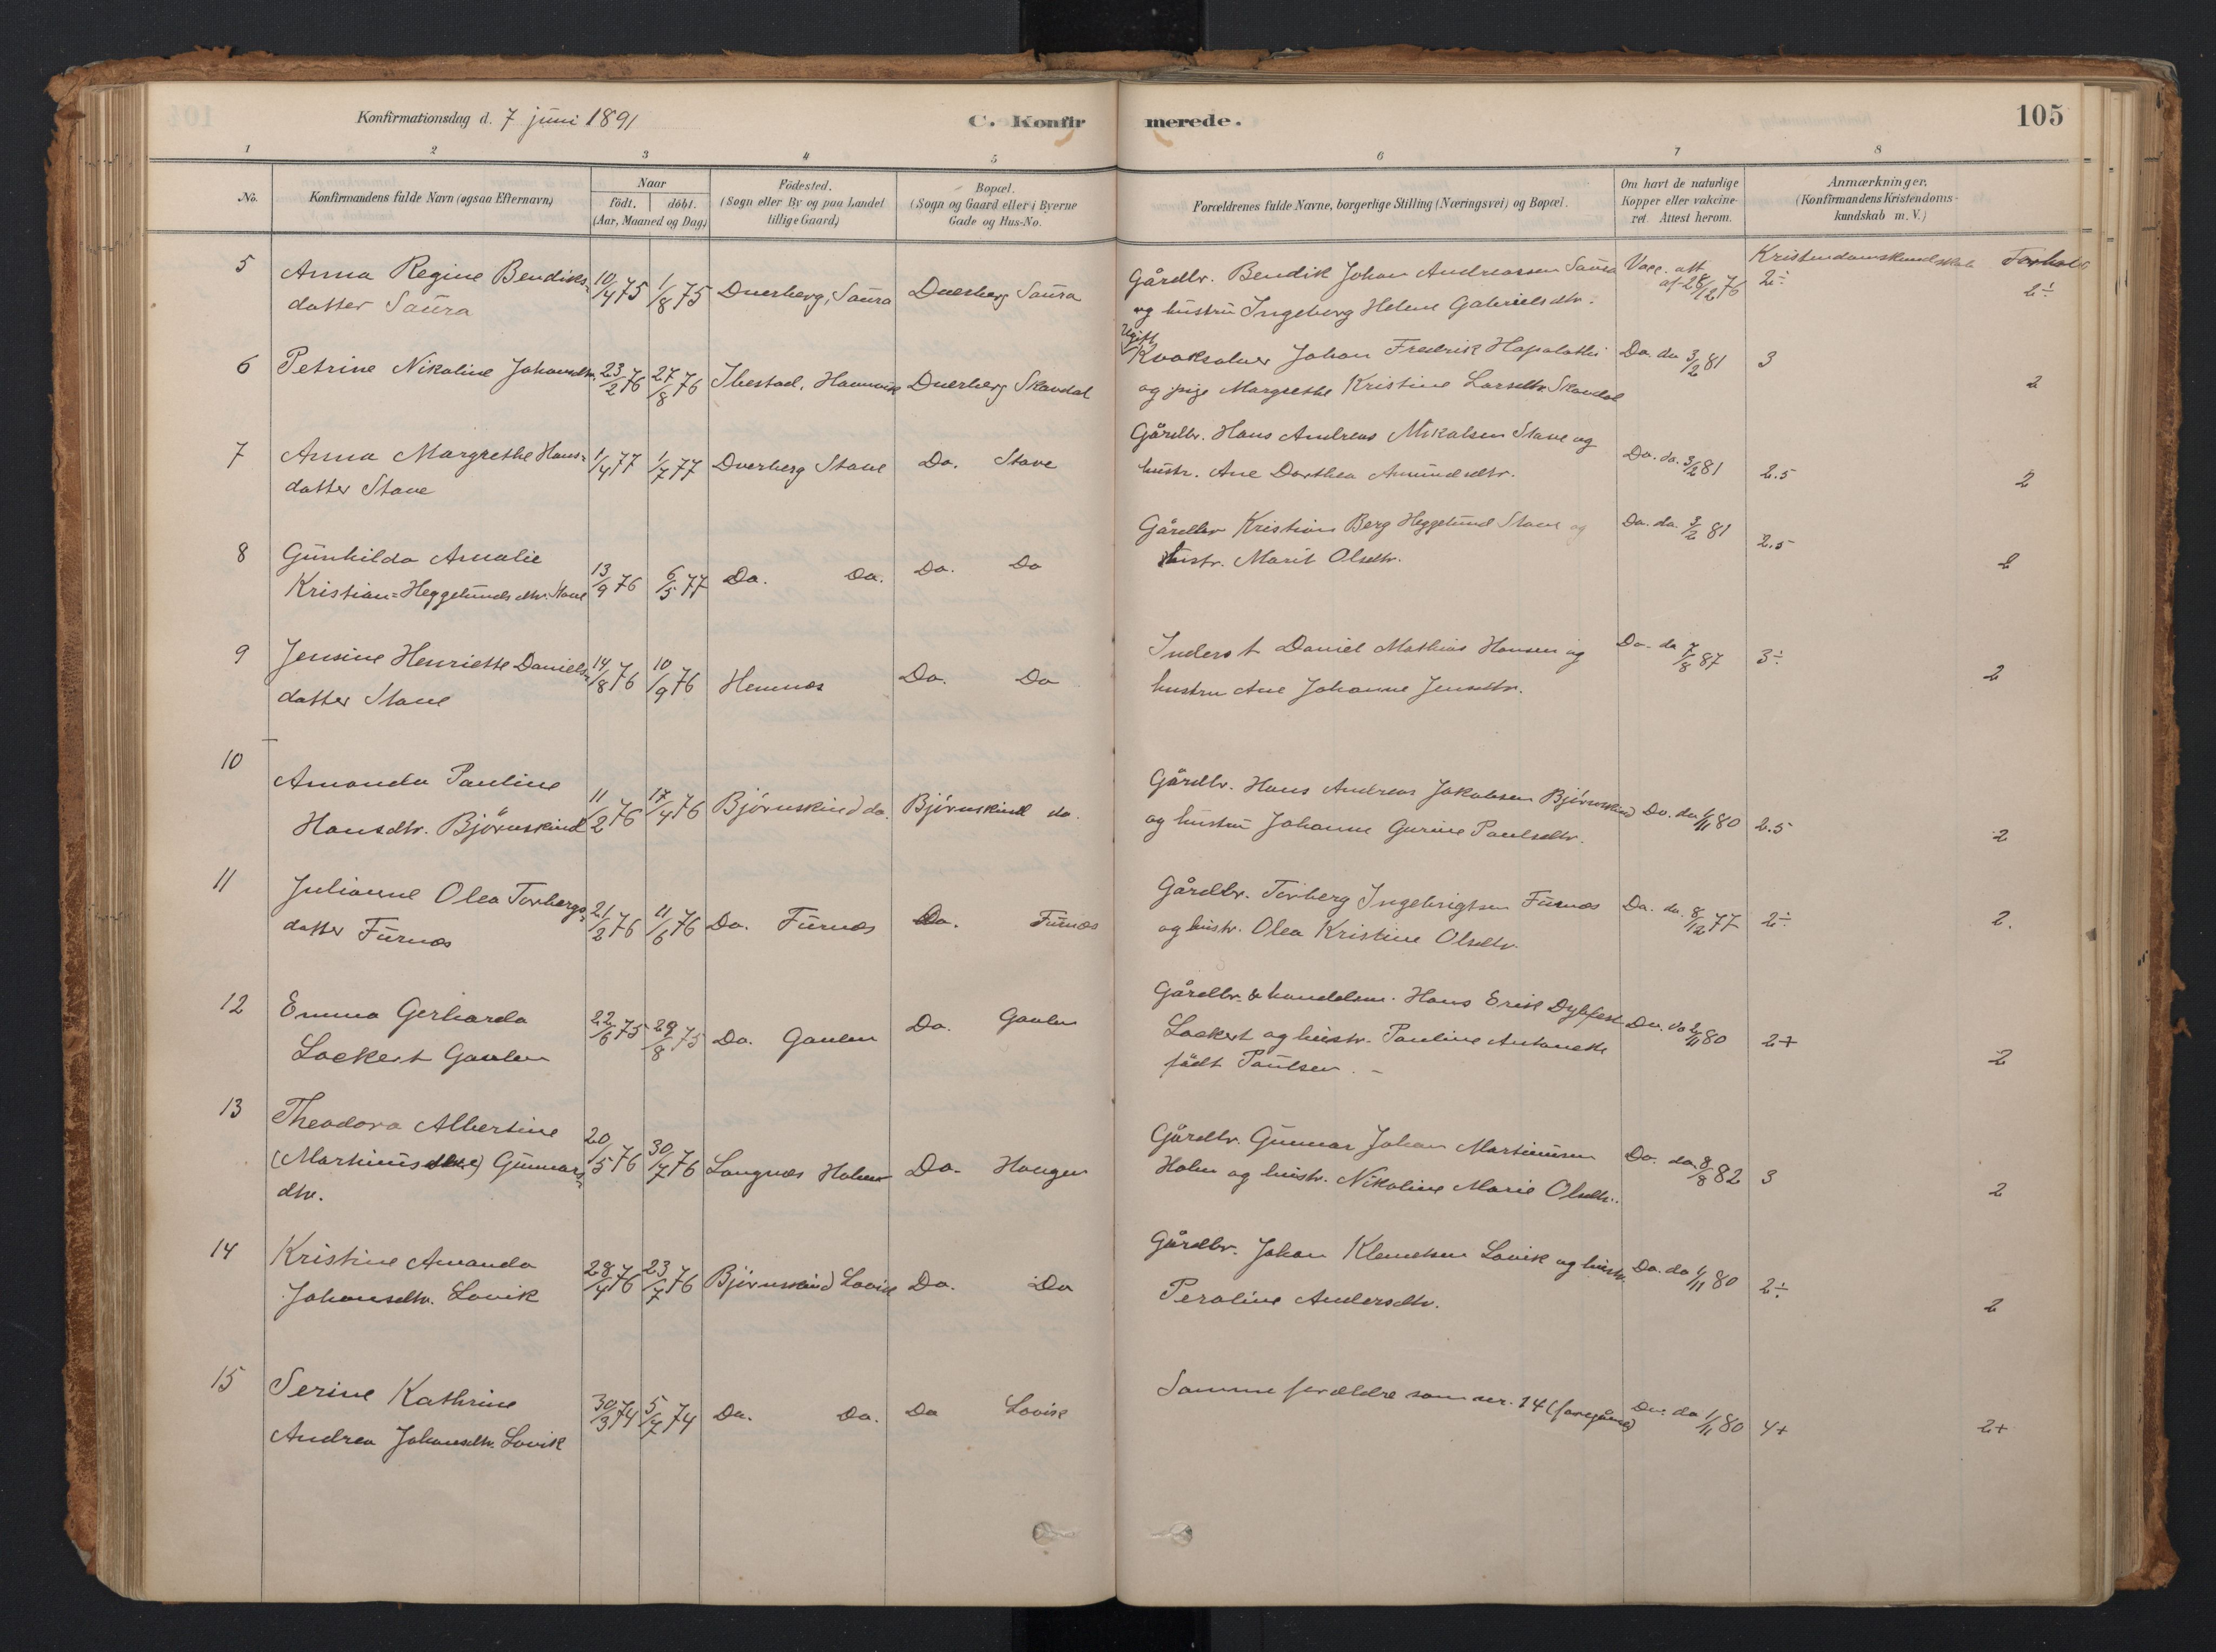 Konfirmationsdag d. 7 juni 1891
C. Konfirmerede.
105
1 2 3 4 5 6 7 8
No.
Konfirmandens fulde Navn (ogsaa Efternavn)
Naar
födt. döbt.
(Aar, Maaned og Dag)
Födested.
(Sogn eller By og paa Landet
tillige Gaard)
Bopæl.
(Sogn og Gaard eller i Byerne
Gade og Hus-No.
Forældrenes fulde Navne, borgerlige Stilling (Næringsvei) og Bopæl.
Om havt de naturlige
Kopper eller vakcine-
ret. Attest herom.
Anmærkninger.
(Konfirmandens Kristendoms-
kundskab m. V.)
Kristendomskundskab Forhold
5 Anna Regine Bendiks= 10/4 75 1/8 75 Dverberg, Saura Dverberg Saura Gårdbr. Bendik Johan Andreassen Saura Vacc. att. af 28/12 76 2÷ 2÷
datter Saura og hustru Ingeborg Helene Gabrielsdtr.
Ugift
6 Petrine Nikoline Johansdtr. 23/2 76 27/8 76 Ibestad, Hamnvik Dverberg Skavdal Kvaksalver Johan Fredrik Hapalahti Do. do 3/2 81 3 2
og pige Margrethe Kristine Larsdtr. Skavdal
7 Anna Margrethe Hans= 1/4 77 1/7 77 Dverberg Stave Do. Stave Gårdbr. Hans Andreas Mikalsen Stave og Do. do. 3/2 81 2.5 2
datter Stave hustr. Ane Dorthea Amundsdtr.
8 Gunhilda Amalie Gårdbr Kristian Berg Heggelund Stave og Do. do. 3/2 81 2.5 2
Kristian=Heggelundsdtr. Stave 13/9 76 6/5 77 Do. Do. Do. Do hustr. Marit Olsdtr.
9 Jensine Henriette Daniels= 14/8 76 10/9 76 Hemnæs Do. Do Inderst Daniel Mathias Hansen og Do. do 7/8 87 3÷ 2
datter Stave hustru Ane Johanne Jensdtr.
10 Amanda Pauline Gårdbr. Hans Andreas Jakobsen Björnskind Do. do 1/11 80 2.5 2
Hansdtr. Björnskind 11/2 76 17/4 76 Björnskind do. Björnskind do. og hustru Johanne Gurine Paulsdtr.
11 Julianne Olea Torbergs= 21/2 76 11/6 76 Do. Furnæs Do. Furnæs Gårdbr. Torberg Ingebrigtsen Furnæs Do. do. 8/12 77 2÷ 2.
datter Furnæs og hustr. Olea Kristine Olsdtr.
12 Emma Gerharda 22/6 75 29/8 75 Do. Gaulen Do. Gaulen Gårdbr. & handelsm. Hans Erik Dybfest Do. do 2/11 80 2+ 2
Lockert Gaulen Lockert og hustr. Pauline Antonette
födt Paulsen. -
13 Theodora Albertine 20/5 76 30/7 76 Langnæs Holm Do. Haugen Gårdbr. Gunnar Johan Martinusen Do. do 8/8 82 3 2
(Martinus) Gunnars= Holm og hustr. Nikoline Marie Olsdtr.
dtr.
14 Kristine Amanda 28/4 76 23/7 76 Björnskind Lovik Do. Do Gårdbr. Johan Klemetsen Lovik og hustr. Do. do 1/11 80 2÷ 2
Johansdtr. Lovik Peroline Andersdtr.
15 Serine Kathrine 30/3 74 5/7 74 Do. Do. Do Lovik Samme forældre som nr. 14 (foregående) Do. do 1/11 80 4+ 2+
Andrea Johansdtr. Lovik